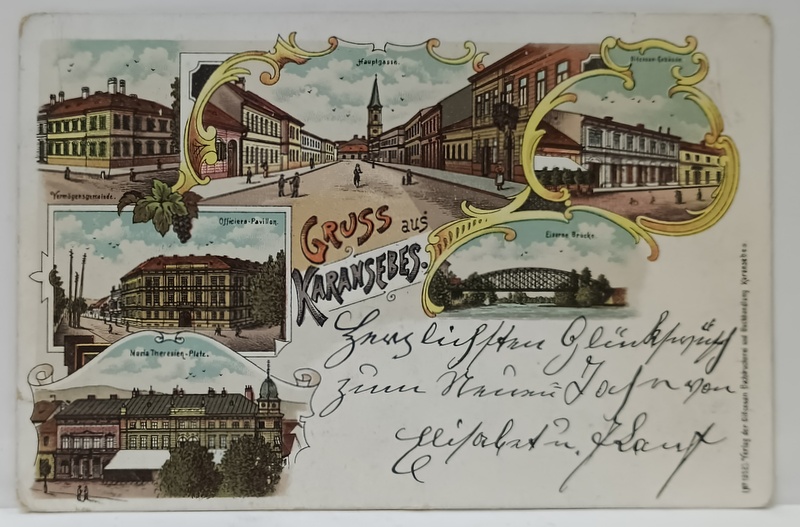 Hauptgasse.
Diözesan-Gebäude
Vermögensgemeinde.
Officiers-Pavillon.
GRUSS aus
KARANSEBES.
Eiserne Brücke.
Maria Theresien-Platz.
Herzlichsten Glückswüsch
zum Neuen Jahr von
Elisabet u.
Verlag der Diözesan Buchdruckerei und Buchhandlung Karansebes